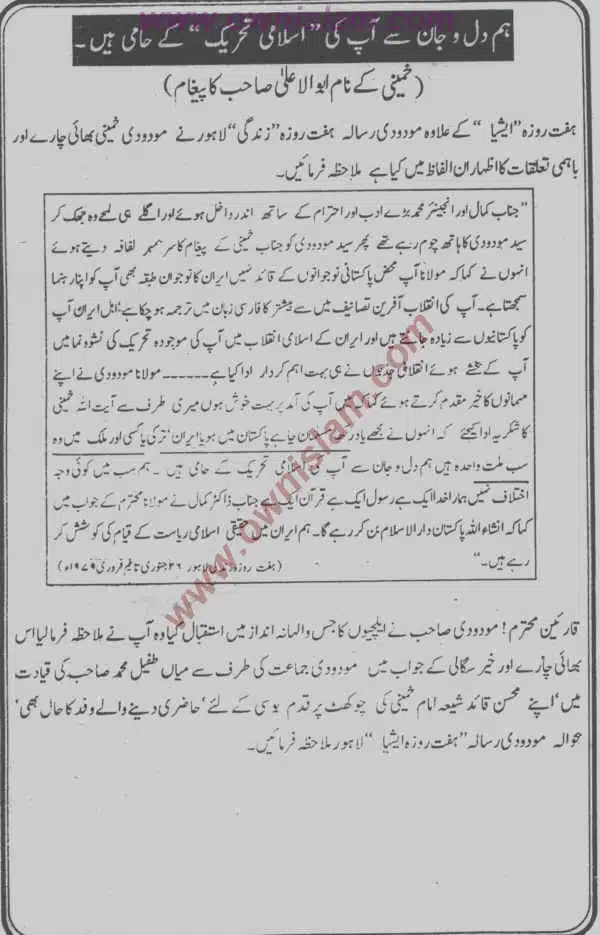 www.ownislam.com
ہم دل و جان سے آپ کی "اسلامی تحریک" کے حامی ہیں۔
(خمینی کے نام ابوالاعلیٰ صاحب کا پیغام)
ہفت روزہ "ایشیا" کے علاوہ مودودی رسالہ ہفت روزہ "زندگی" لاہور نے مودودی خمینی بھائی چارے اور
باہمی تعلقات کا اظہار ان الفاظ میں کیا ہے ملاحظہ فرمائیں۔
"جناب کمال اور انجینئر محمد بڑے ادب اور احترام کے ساتھ اندر داخل ہوئے اور اگلے ہی لمحے وہ جھک کر
سید مودودی کا ہاتھ چوم رہے تھے پھر سید مودودی کو جناب خمینی کے پیغام کا سر بمہر لفافہ دیتے ہوئے
انہوں نے کہا کہ مولانا آپ محض پاکستانی نوجوانوں کے قائد نہیں ایران کا نوجوان طبقہ بھی آپ کو اپنا رہنما
سمجھتا ہے۔ آپ کی انقلاب آفرین تصانیف میں سے بیشتر کا فارسی زبان میں ترجمہ ہو چکا ہے' اہل ایران آپ
کو پاکستانیوں سے زیادہ جانتے ہیں اور ایران کے اسلامی انقلاب میں آپ کی موجودہ تحریک کی نشوونما میں
آپ کے بخشے ہوئے انقلابی جذبوں نے ہی بہت اہم کردار ادا کیا ہے۔۔۔۔۔۔ مولانا مودودی نے اپنے
مہمانوں کا خیر مقدم کرتے ہوئے کہا کہ میں آپ کی آمد پر بہت خوش ہوں میری طرف سے آیت اللہ خمینی
کا شکریہ ادا کیجئے کہ انہوں نے مجھے یاد رکھا مسلمان چاہے پاکستان میں ہو یا ایران' ترکی یا کسی اور ملک میں وہ
سب ملت واحدہ ہیں ہم دل و جان سے آپ کی اسلامی تحریک کے حامی ہیں۔ ہم سب میں کوئی وجہ
اختلاف نہیں ہمارا خدا ایک ہے رسول ایک ہے قرآن ایک ہے جناب ڈاکٹر کمال نے مولانا محترم کے جواب میں
کہا کہ انشاء اللہ پاکستان دارالاسلام بن کر رہے گا۔ ہم ایران میں حقیقی اسلامی ریاست کے قیام کی کوشش کر
رہے ہیں۔" (ہفت روزہ زندگی لاہور ۲۶ جنوری تا یکم فروری ۱۹۷۹ء)
قارئین محترم! مودودی صاحب نے ایلچیوں کا جس والہانہ انداز میں استقبال کیا وہ آپ نے ملاحظہ فرما لیا اس
بھائی چارے اور خیر سگالی کے جواب میں مودودی جماعت کی طرف سے میاں طفیل محمد صاحب کی قیادت
میں' اپنے محسن قائد شیعہ امام خمینی کی چوکھٹ پر قدم بوسی کے لئے' حاضری دینے والے وفد کا حال بھی'
بحوالہ مودودی رسالہ "ہفت روزہ ایشیا" لاہور ملاحظہ فرمائیں۔
www.ownislam.com